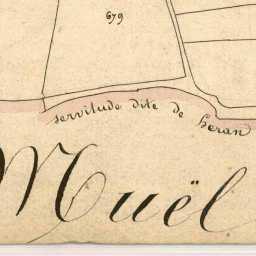 679
servitude dite de Leran
Muël